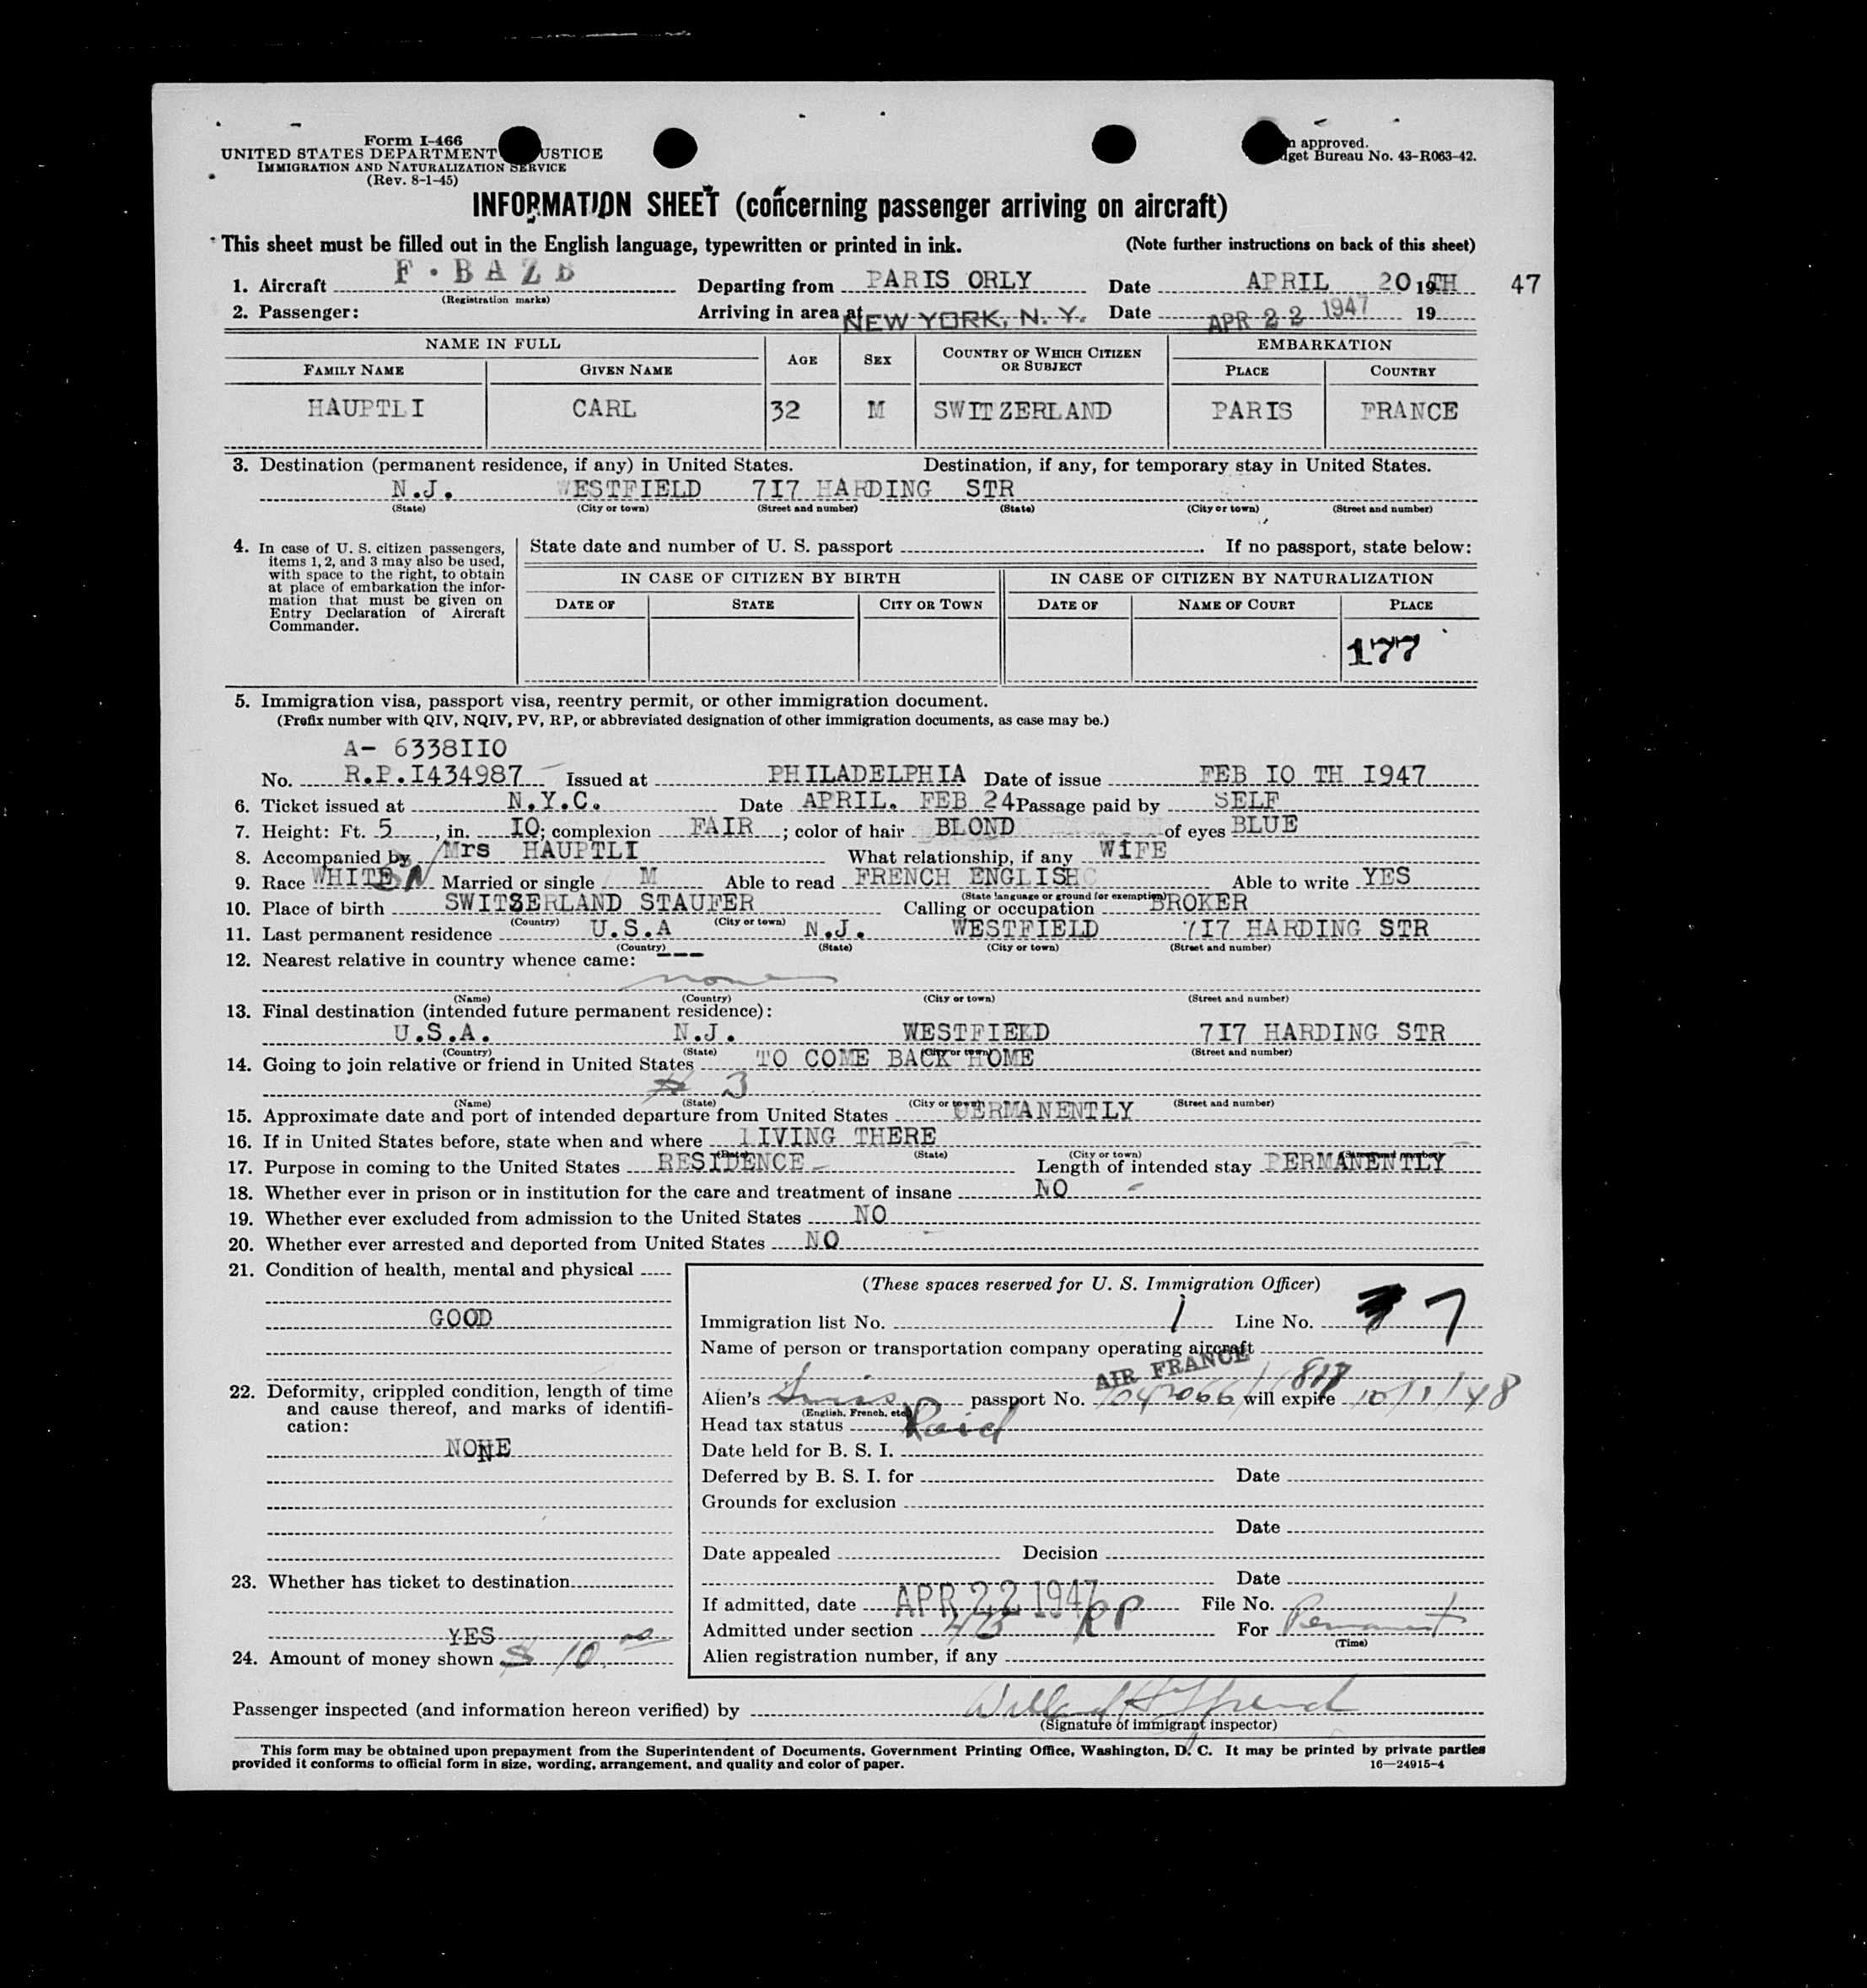 Form I-466
UNITED STATES DEPARTMENT USTICE
IMMIGRATION AND NATURALIZATION SERVICE
(Rev. 8-1-45)
n approved.
get Bureau No. 43-R063-42.
INFORMATION SHEET (concerning passenger arriving on aircraft)
This sheet must be filled out in the English language, typewritten or printed in ink. (Note further instructions on back of this sheet)
1. Aircraft F·BAZB Departing from PARIS ORLY Date APRIL 20 19TH 47
(Registration marks)
2. Passenger: Arriving in area at NEW YORK, N. Y. Date APR 22 1947 19
NAME IN FULL AGE SEX COUNTRY OF WHICH CITIZEN OR SUBJECT EMBARKATION
FAMILY NAME GIVEN NAME PLACE COUNTRY
HAUPTLI CARL 32 M SWITZERLAND PARIS FRANCE
3. Destination (permanent residence, if any) in United States. Destination, if any, for temporary stay in United States.
N.J. WESTFIELD 7I7 HARDING STR
(State) (City or town) (Street and number) (State) (City or town) (Street and number)
4. In case of U. S. citizen passengers, items 1, 2, and 3 may also be used, with space to the right, to obtain at place of embarkation the information that must be given on Entry Declaration of Aircraft Commander.
State date and number of U. S. passport If no passport, state below:
IN CASE OF CITIZEN BY BIRTH IN CASE OF CITIZEN BY NATURALIZATION
DATE OF STATE CITY OR TOWN DATE OF NAME OF COURT PLACE
177
5. Immigration visa, passport visa, reentry permit, or other immigration document.
(Prefix number with QIV, NQIV, PV, RP, or abbreviated designation of other immigration documents, as case may be.)
A- 6338IIO
No. R.P.I434987 Issued at PHILADELPHIA Date of issue FEB IO TH I947
6. Ticket issued at N.Y.C. Date APRIL. FEB 24 Passage paid by SELF
7. Height: Ft. 5, in. IO; complexion FAIR; color of hair BLOND of eyes BLUE
8. Accompanied by Mrs HAUPTLI What relationship, if any WIFE
9. Race WHITE Married or single M Able to read FRENCH ENGLISH Able to write YES
(State language or ground for exemption)
10. Place of birth SWITSERLAND STAUFER Calling or occupation BROKER
(Country) (City or town)
11. Last permanent residence U.S.A N.J. WESTFIELD 7I7 HARDING STR
(Country) (State) (City or town) (Street and number)
12. Nearest relative in country whence came: ---
none
(Name) (Country) (City or town) (Street and number)
13. Final destination (intended future permanent residence):
U.S.A. N.J. WESTFIELD 7I7 HARDING STR
(Country) (State) (City or town) (Street and number)
14. Going to join relative or friend in United States TO COME BACK HOME
3
(Name) (State) (City or town) (Street and number)
15. Approximate date and port of intended departure from United States PERMANENTLY
16. If in United States before, state when and where LIVING THERE
(Date) (State) (City or town) (Street and number)
17. Purpose in coming to the United States RESIDENCE Length of intended stay PERMANENTLY
18. Whether ever in prison or in institution for the care and treatment of insane NO
19. Whether ever excluded from admission to the United States NO
20. Whether ever arrested and deported from United States NO
21. Condition of health, mental and physical
GOOD
22. Deformity, crippled condition, length of time and cause thereof, and marks of identification:
NONE
23. Whether has ticket to destination
YES
24. Amount of money shown $ 10.00
(These spaces reserved for U. S. Immigration Officer)
Immigration list No. 1 Line No. 7
Name of person or transportation company operating aircraft
AIR FRANCE
Alien's Swiss passport No. will expire 10/1/48
(English, French, etc.)
Head tax status Paid
Date held for B. S. I.
Deferred by B. S. I. for Date
Grounds for exclusion
Date
Date appealed Decision
Date
If admitted, date APR 22 1947 File No.
Admitted under section 4B RP For Permanent
(Time)
Alien registration number, if any
Passenger inspected (and information hereon verified) by
(Signature of immigrant inspector)
This form may be obtained upon prepayment from the Superintendent of Documents, Government Printing Office, Washington, D. C. It may be printed by private parties
provided it conforms to official form in size, wording, arrangement, and quality and color of paper. 16—24915-4